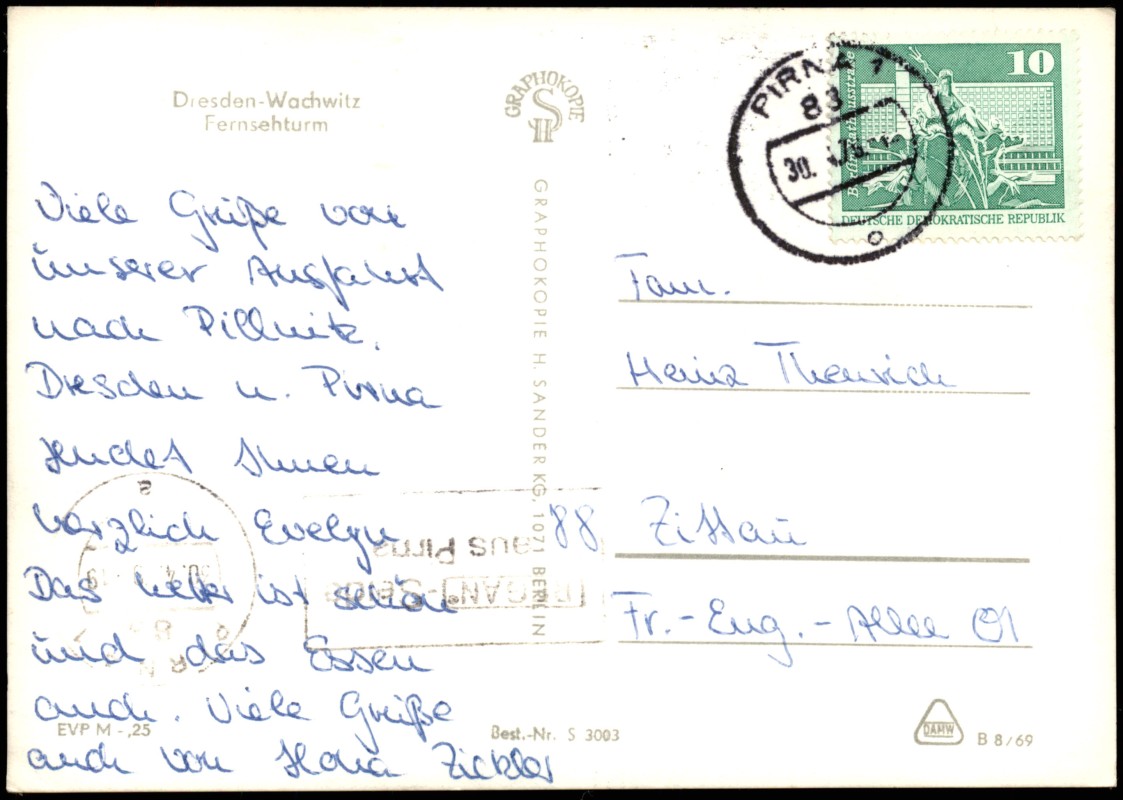 Dresden-Wachwitz
Fernsehturm
Viele Grüße von
unserer Ausfahrt
nach Pillnitz,
Dresden u. Pirna
sendet Ihnen
herzlich Evelyn
Das Wetter ist schön
und das Essen
auch. Viele Grüße
auch von Ilona Zickler
EVP M -,25
Best.-Nr. S 3003
GRAPHOKOPIE
GRAPHOKOPIE H. SANDER KG. 1071 BERLIN
PIRNA 1
83
30.
10
Berlin Rathausstraße
DEUTSCHE DEMOKRATISCHE REPUBLIK
Fam.
Heinz
88 Zittau
Fr.-Eng.-Allee
DAMW
B 8/69
aus Pirna